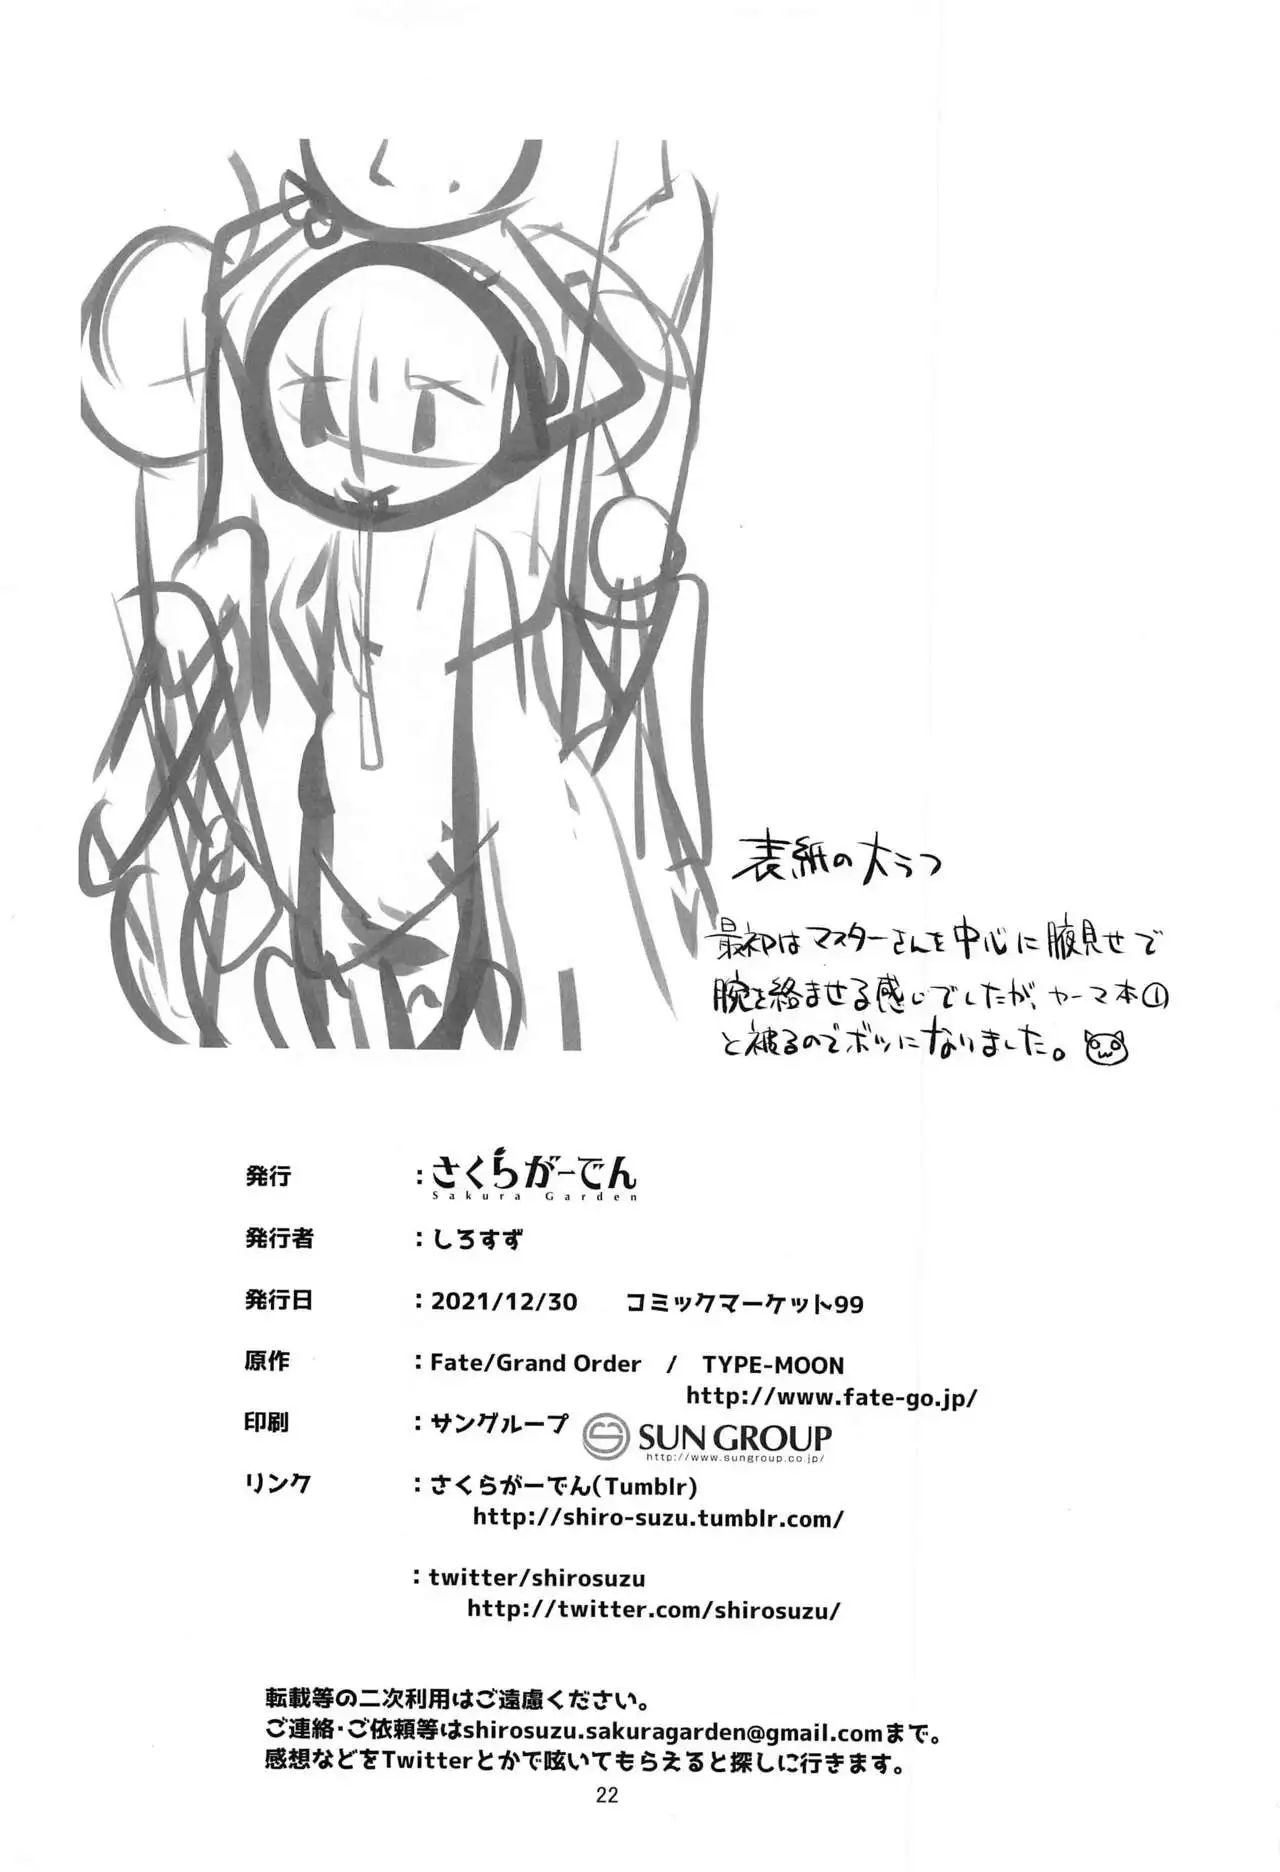 表紙の大らフ
最初はマスターさんを中心に腋見せで
腕を絡ませる感じでしたが、カーマ本①
と被るのでボツになりました。
発行 :さくらがーでん
Sakura Garden
発行者 :しろすず
発行日 :2021/12/30 コミックマーケット99
原作 :Fate/Grand Order / TYPE-MOON
http://www.fate-go.jp/
印刷 :サングループ SUN GROUP
http://www.sungroup.co.jp/
リンク :さくらがーでん(Tumblr)
http://shiro-suzu.tumblr.com/
:twitter/shirosuzu
http://twitter.com/shirosuzu/
転載等の二次利用はご遠慮ください。
ご連絡・ご依頼等はshirosuzu.sakuragarden@gmail.comまで。
感想などをTwitterとかで呟いてもらえると探しに行きます。
22